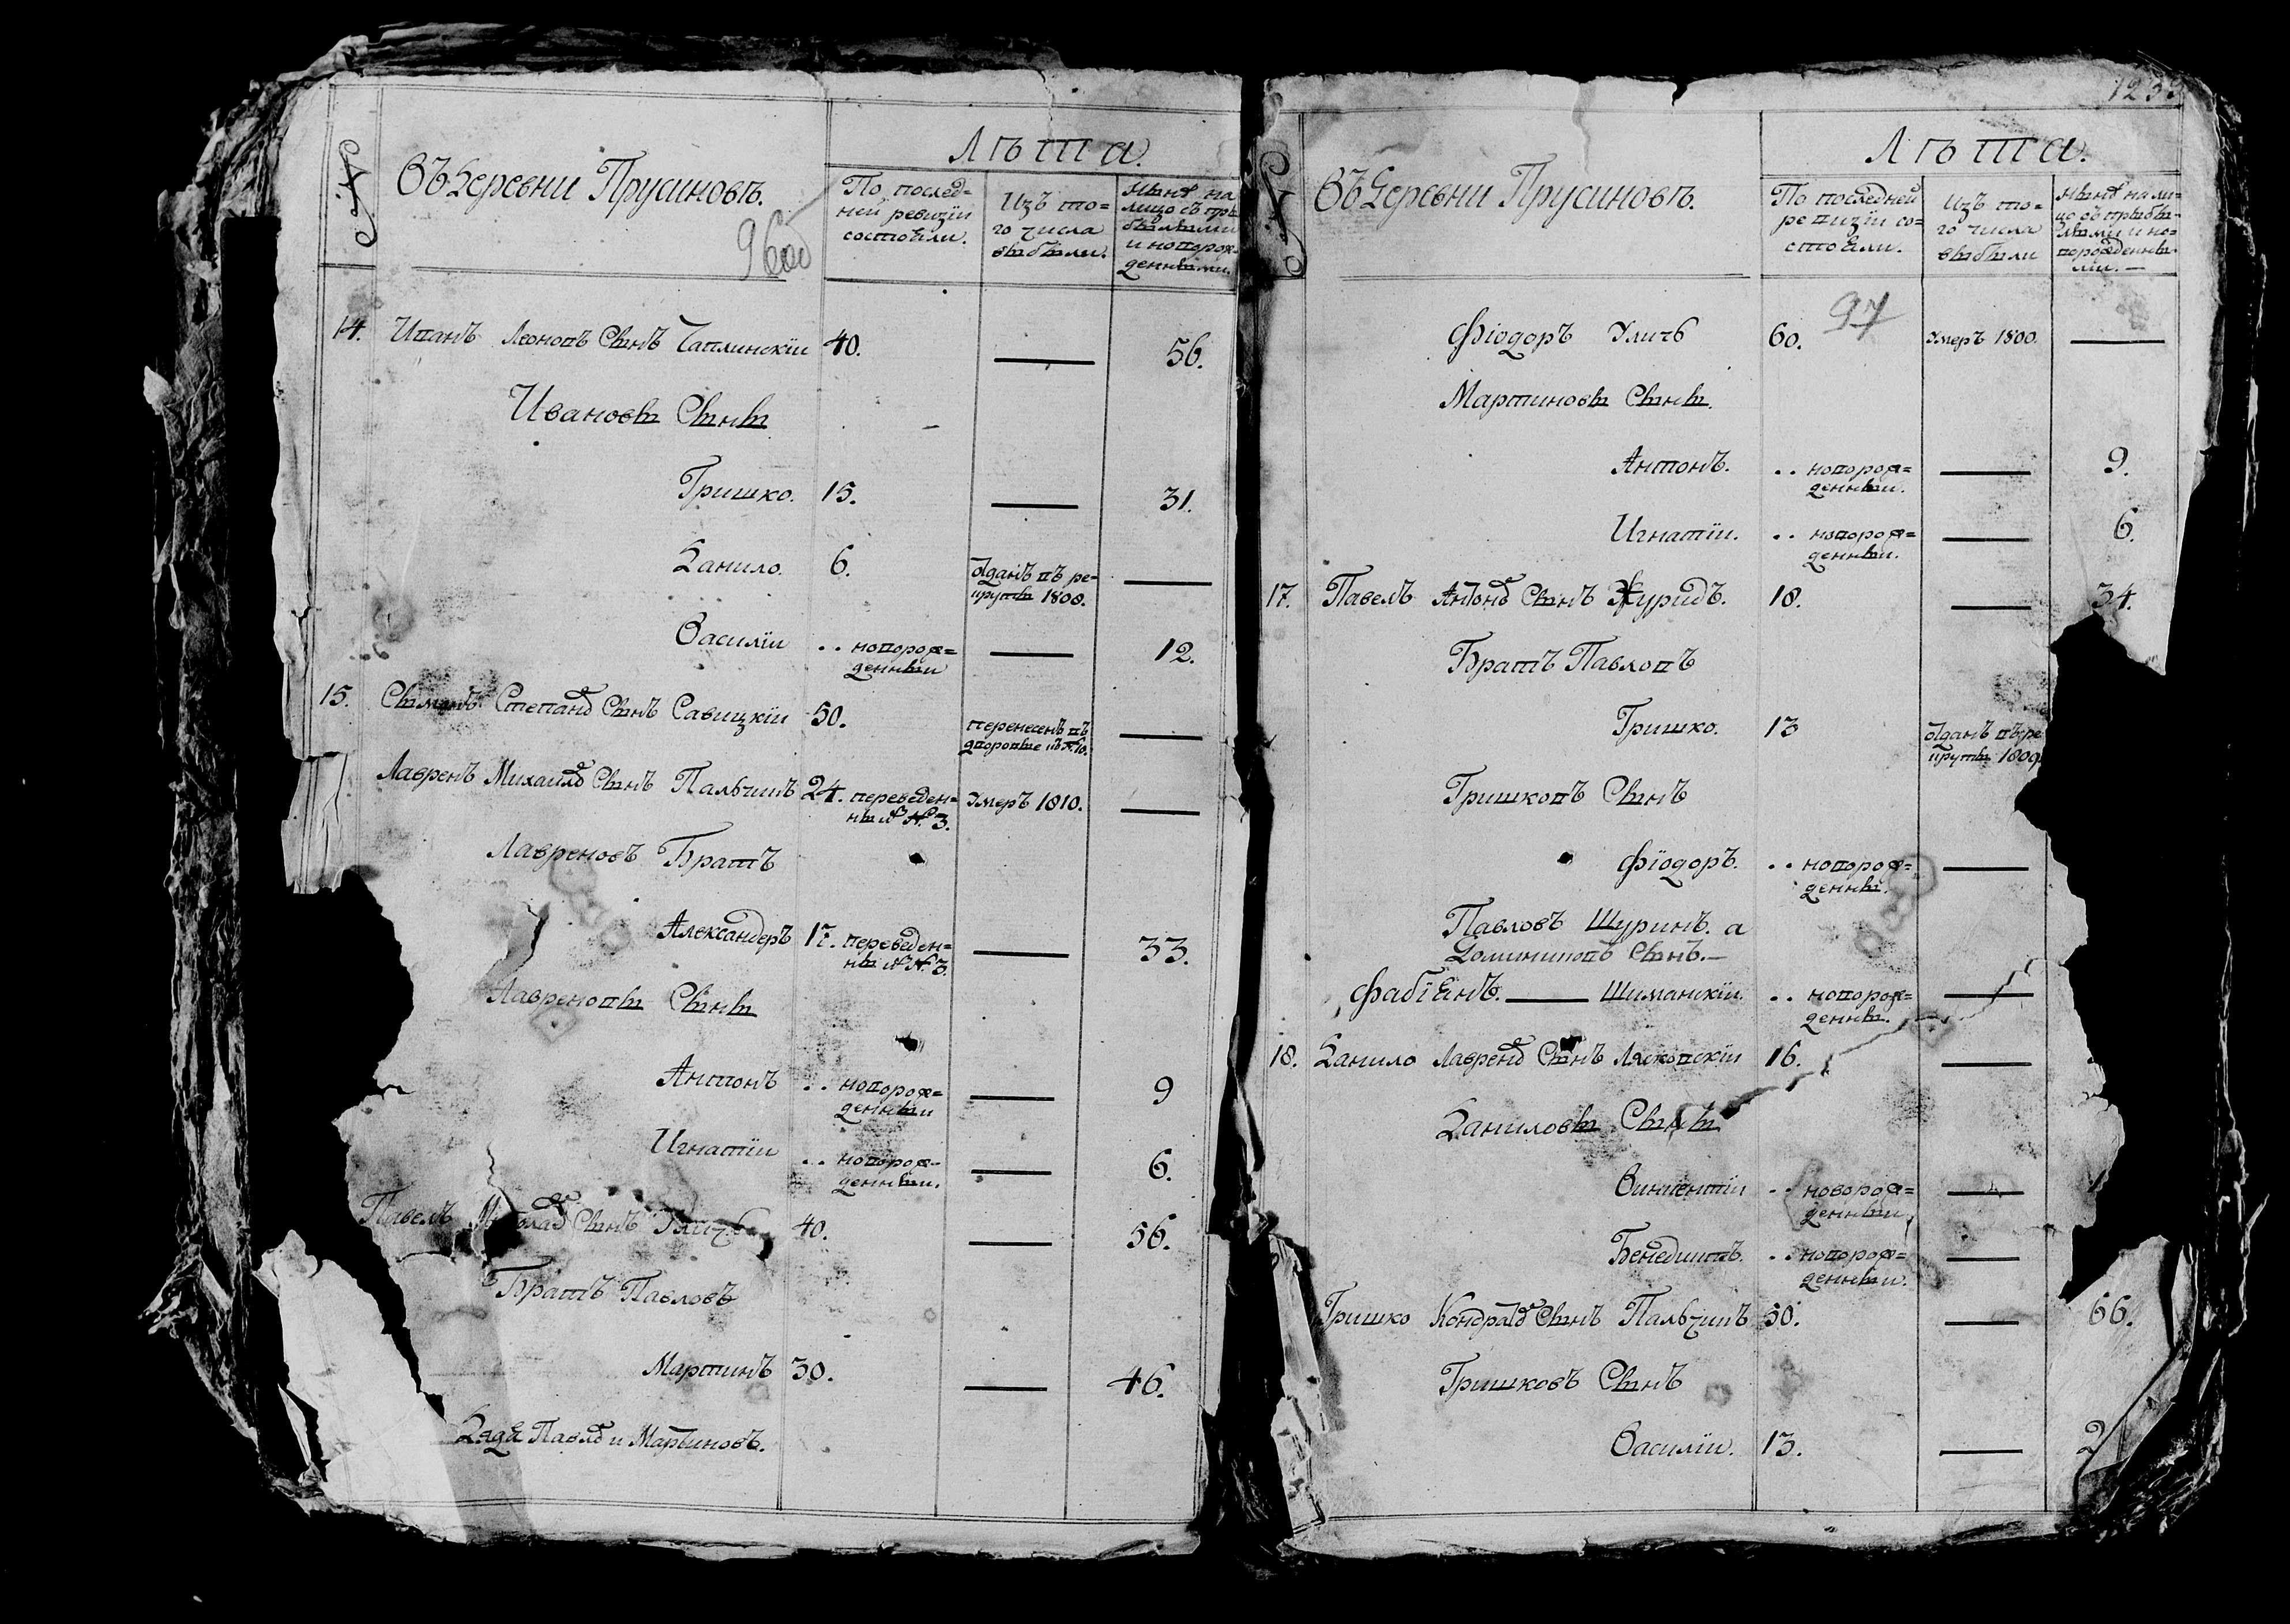 №
Въ Деревни Прусиновъ.
96об
Лѣта.
По послед=
ней ревизіи
состояли.
Изъ то=
го числа
выбыли.
Нынѣ на
лицо съ при
былыми
и новорож=
денными.
14. Иванъ Леоновъ Сынъ Чаплинскіи 40. — 56.
Ивановы Сыны
Гришко. 15. — 31.
Данило. 6. отданъ въ ре=
круты 1808. —
Василіи .. новорож=
денныи — 12.
15. Сымонъ Степановъ Сынъ Савицкіи 50. перенесенъ въ
дворовые —
Лавренъ Михаиловъ Сынъ Пальчикъ 24. переведен=
ны № 3. Умеръ 1810. —
Лавреновъ Братъ
Александеръ 17. переведен=
ны № 3. — 33.
Лавреновы Сыны
Антонъ .. новорож=
денныи — 9
Игнатіи .. новорож=
денныи. — 6.
Павелъ Сынъ Уличъ 40. — 56.
Братъ Павловъ
Мартинъ 30. — 46.
Дядя Павловъ и Мартиновъ.
123
№
Въ Деревни Прусиновъ.
Лѣта.
По последней
ревизіи со=
стояли.
Изъ то=
го числа
выбыли
Нынѣ на ли=
цо съ прибы=
лыми и но=
ворожденны
ми. —
97
Фіодоръ Уличъ 60. Умеръ 1800. —
Мартиновы Сыны.
Антонъ. .. новорож=
денныи. — 9.
Игнатіи. .. новорож=
денныи. — 6.
17. Павелъ Антоновъ Сынъ Журидъ. 18. — 34.
Братъ Павловъ
Гришко. 13 отданъ въ ре
круты 1809.
Гришковъ Сынъ
Фіодоръ. .. новорож=
денны. —
Павловъ Шуринъ. а
Доминиковъ Сынъ. —
Фабіянъ. — Шиманскіи. .. новорож=
денны. —
18. Данило Лавреновъ Сынъ Ляховскіи 16. —
Даниловы Сыны
Винцентіи .. новорож=
денныи —
Бенедиктъ. .. новорож=
денныи. —
Гришко Кондратовъ Сынъ Пальчикъ 50. — 66.
Гришковъ Сынъ
Василіи. 13. — 2